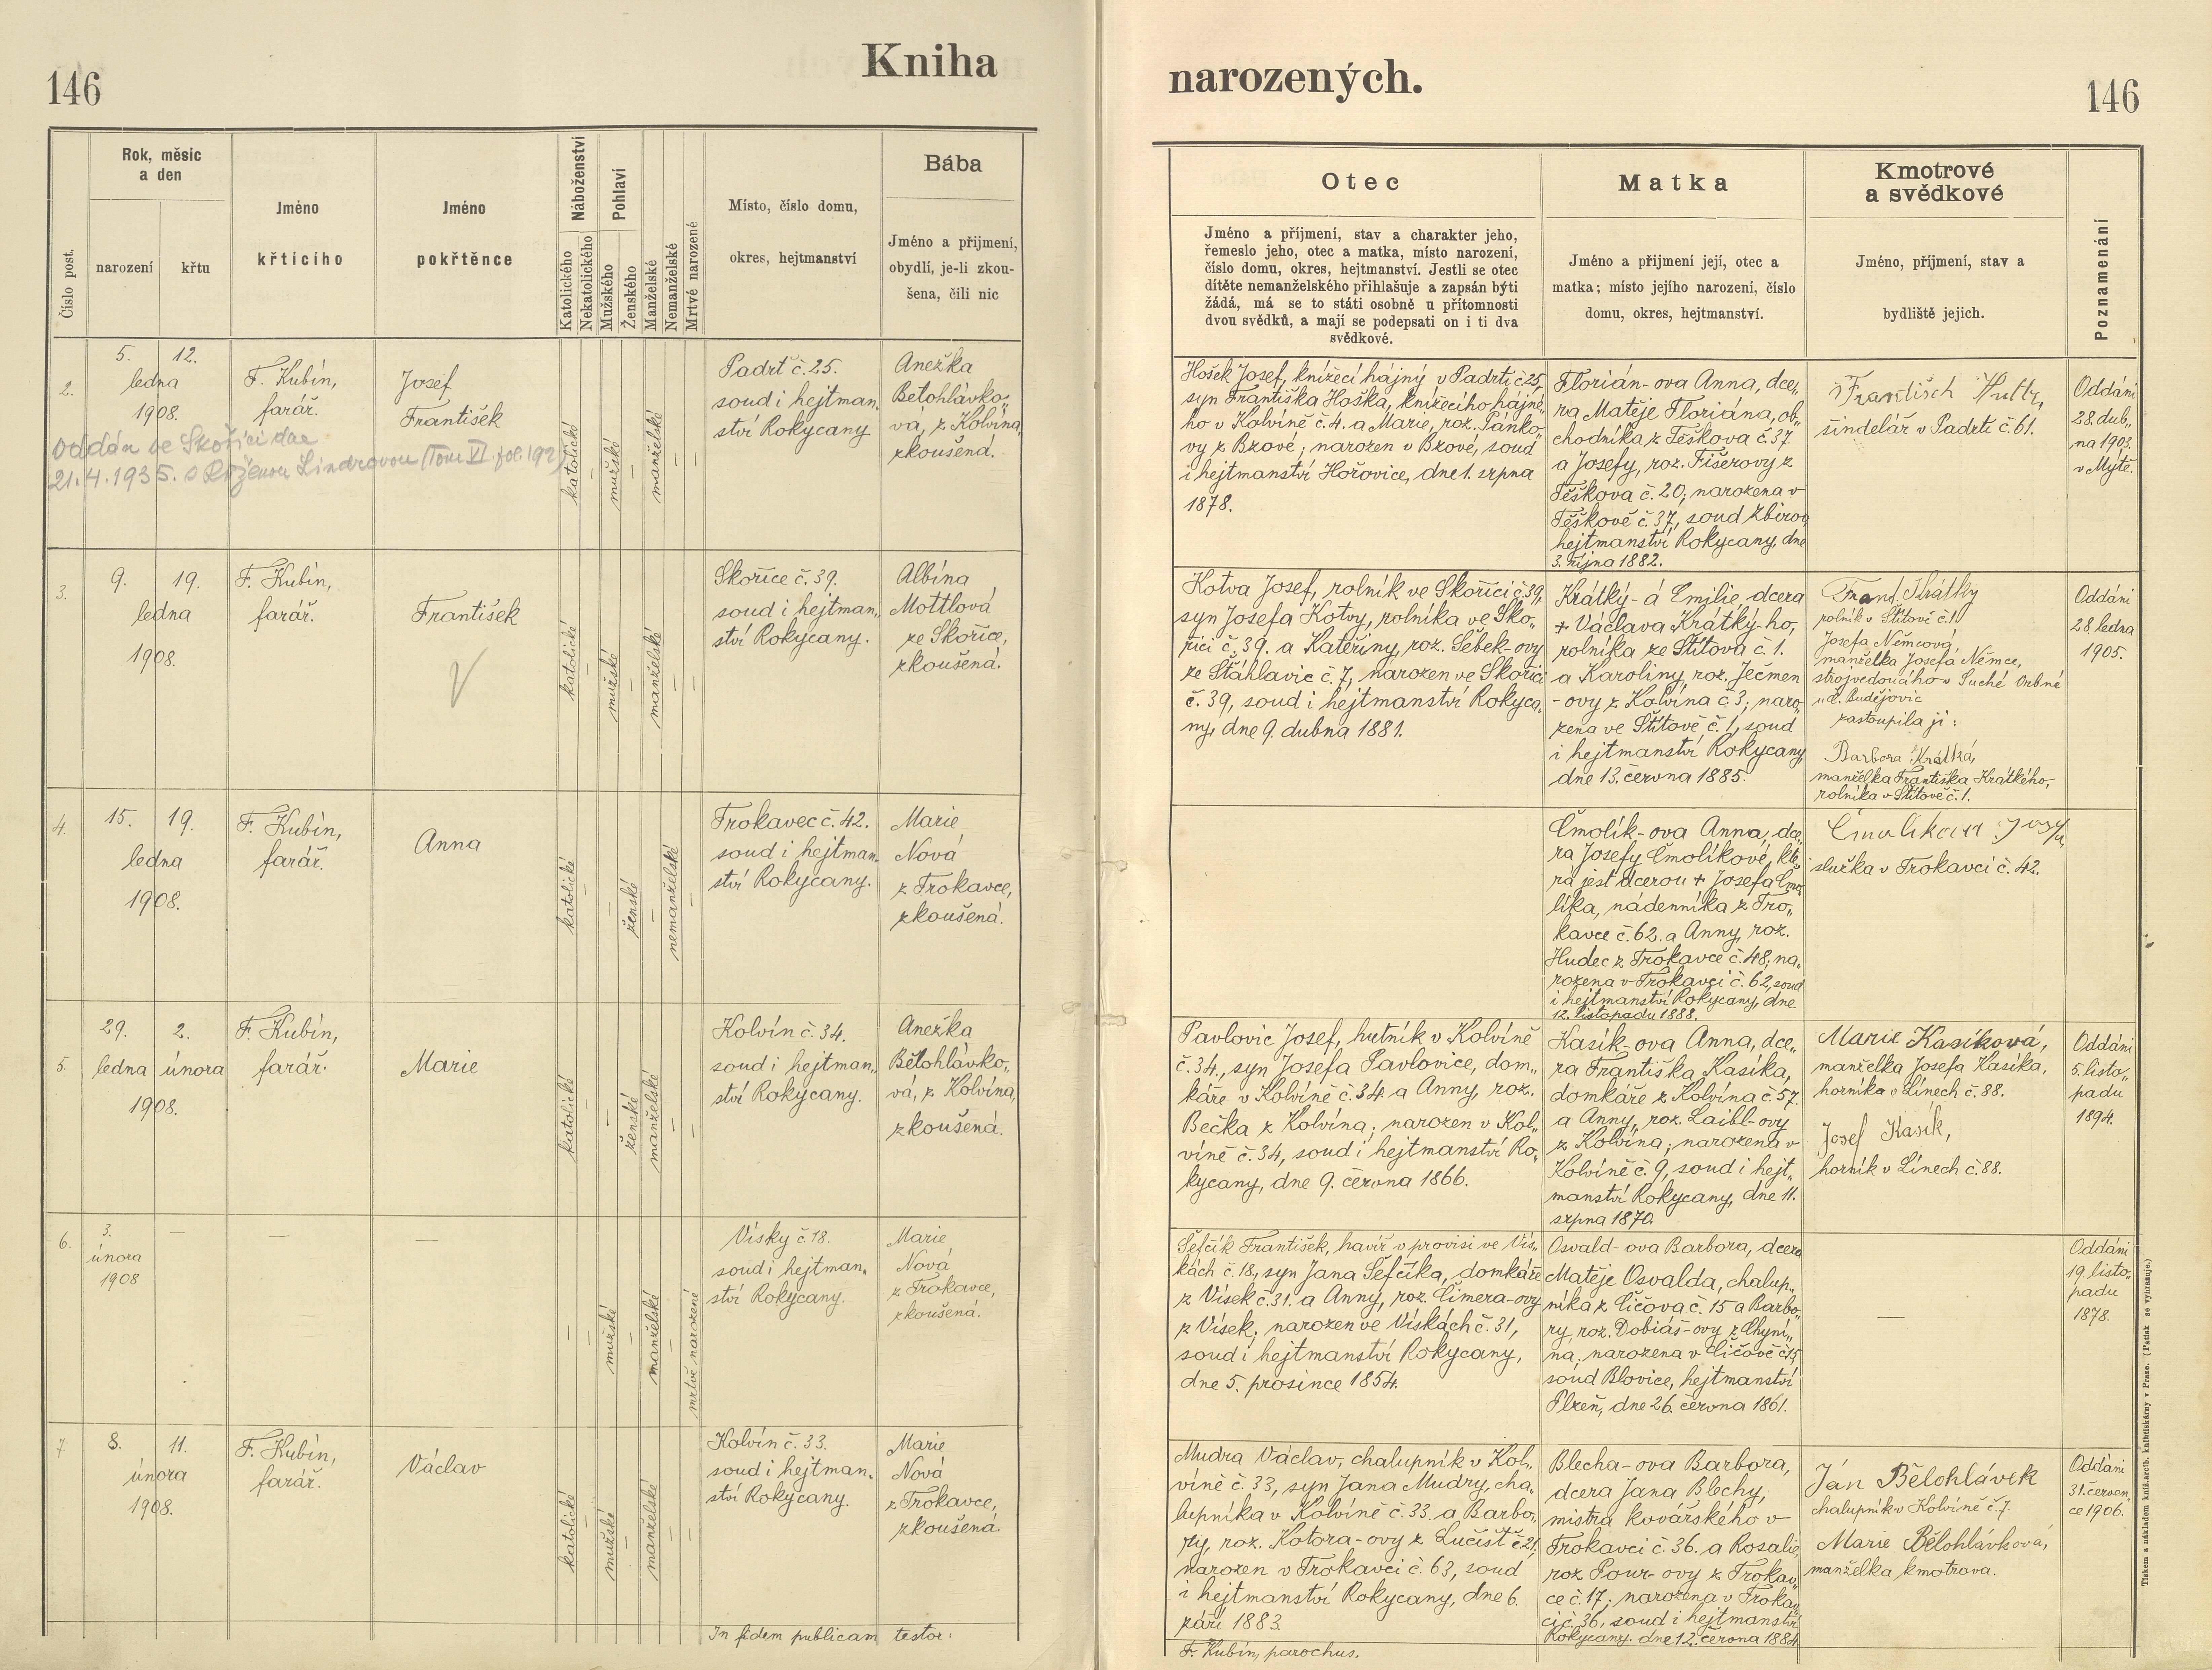 146
Kniha
narozených.
146
Číslo post.
Rok, měsic
a den
narození
křtu
Jméno
křticího
Jméno
pokřtěnce
Náboženství
Katolického
Nekatolického
Pohlaví
Mužského
Ženského
Manželské
Nemanželské
Mrtvé narozené
Místo, číslo domu,
okres, hejtmanství
Bába
Jméno a přijmení,
obydlí, je-li zkou-
šena, čili nic
Otec
Jméno a příjmení, stav a charakter jeho,
řemeslo jeho, otec a matka, místo narození,
číslo domu, okres, hejtmanství. Jestli se otec
dítěte nemanželského přihlašuje a zapsán býti
žádá, má se to státi osobně u přítomnosti
dvou svědků, a mají se podepsati on i ti dva
svědkové.
Matka
Jméno a přijmení její, otec a
matka; místo jejího narození, číslo
domu, okres, hejtmanství.
Kmotrové
a svědkové
Jméno, příjmení, stav a
bydliště jejich.
Poznamenání
2.
5.
12.
ledna
1908.
F. Kubín,
farář.
Josef
František
oddán ve Skořici dne
21.4.1935. s Růženou Lindravou (Tom VI. fol. 192)
katolické
—
mužské
—
manželské
—
—
Padrť č. 25.
soud i hejtman„
ství Rokycany
Anežka
Bělohlávko„
vá, z Kolvína,
zkoušená.
Hošek Josef, knížecí hájný v Padrti č 25,
syn Františka Hoška, knížecího hájné„
ho v Kolvíně č. 4. a Marie, roz. Pánko„
vy z Bzové; narozen v Bzové, soud
i hejtmanství Hořovice, dne 1. srpna
1878.
Florián-ova Anna, dce„
ra Matěje Floriána, ob„
chodníka z Těškova č 37.
a Josefy, roz. Fišerovy z
Těškova č. 20; narozena v
Těškově č. 37, soud Zbirov
hejtmanství Rokycany, dne
3. října 1882.
šindelář v Padrti č 61.
Oddáni
28. dub„
na 1903.
v Mýtě.
3.
9.
19.
ledna
1908.
F. Kubín,
farář.
František
katolické
—
mužské
—
manželské
—
—
Skořice č. 39.
soud i hejtman„
ství Rokycany.
Albína
Mottlová
ze Skořice,
zkoušená.
Kotva Josef, rolník ve Skořici č 39,
syn Josefa Kotvy, rolníka ve Sko„
řici č. 39. a Kateřiny, roz. Šebek-ovy
ze Šťáhlavic č. 7, narozen ve Skořici
č. 39, soud i hejtmanství Rokyca„
ny, dne 9. dubna 1881.
Krátký-á Emilie, dcera
+ Václava Krátký-ho,
rolníka ze Štítova č. 1.
a Karoliny, roz. Ječmen
-ovy z Kolvína č 3; naro„
zena ve Štítově č. 1, soud
i hejtmanství Rokycany,
dne 13. června 1885.
Frant. Krátký
rolník v Štítově č. 1
Josefa Němcová,
manželka Josefa Němce,
strojvedoucího v Suché Vrbné
u Č. Budějovic
zastoupila ji:
Barbora Krátká,
manželka Františka Krátkého,
rolníka v Štítově č. 1.
Oddáni
28. ledna
1905.
4.
15.
19.
ledna
1908.
F. Kubín,
farář.
Anna
katolické
—
—
ženské
—
nemanželské
—
Trokavec č. 42.
soud i hejtman„
ství Rokycany.
Marie
Nová
z Trokavce,
zkoušená.
Čmolík-ova Anna, dce„
ra Josefy Čmolíkové, kte„
rá jest dcerou + Josefa Čmo„
líka, nádenníka z Tro„
kavce č. 62. a Anny, roz.
Hudec z Trokavce č. 48, na„
rozena v Trokavci č. 62, soud
i hejtmanství Rokycany, dne
12. listopadu 1888.
služka v Trokavci č. 42.
5.
29.
2.
ledna
února
1908.
F. Kubín,
farář.
Marie
katolické
—
—
ženské
manželské
—
—
Kolvín č. 34.
soud i hejtman„
ství Rokycany.
Anežka
Bělohlávko„
vá, z Kolvína,
zkoušená.
Pavlovic Josef, hutník v Kolvíně
č. 34., syn Josefa Pavlovice, dom„
káře v Kolvíně č. 34. a Anny, roz.
Bečka z Kolvína; narozen v Kol„
víně č. 34, soud i hejtmanství Ro„
kycany, dne 9. června 1866.
Kasík-ova Anna, dce„
ra Františka Kasíka,
domkáře z Kolvína č. 57.
a Anny, roz. Laibl-ovy
z Kolvína; narozena v
Kolvíně č. 9, soud i hejt„
manství Rokycany, dne 11.
srpna 1870.
Marie Kasíková,
manželka Josefa Kasíka,
horníka v Línech č. 88.
Josef Kasík,
horník v Línech č. 88.
Oddáni
5. listo„
padu
1894.
6.
3.
února
1908
—
—
—
—
—
mužské
—
manželské
—
mrtvě narozené
Vísky č. 18.
soud i hejtman„
ství Rokycany.
Marie
Nová
z Trokavce,
zkoušená.
Šefčík František, havíř v provisi ve Vís„
kách č. 18, syn Jana Šefčíka, domkáře
z Vísek č. 31. a Anny, roz. Cimera-ovy
z Vísek; narozen ve Vískách č. 31,
soud i hejtmanství Rokycany,
dne 5. prosince 1854.
Osvald-ova Barbora, dcera
Matěje Osvalda, chalup„
níka z Číčova č. 15 a Barbo„
ry, roz. Dobiáš-ovy z Chyní„
na, narozena v Číčově č 15,
soud Blovice, hejtmanství
Plzeň, dne 26. června 1861.
—
Oddáni
19. listo„
padu
1878.
7.
8.
11.
února
1908.
F. Kubín,
farář.
Václav
katolické
—
mužské
—
manželské
—
—
Kolvín č. 33.
soud i hejtman„
ství Rokycany.
Marie
Nová
z Trokavce,
zkoušená.
Mudra Václav, chalupník v Kol„
víně č. 33, syn Jana Mudry, cha„
lupníka v Kolvíně č. 33. a Barbo„
ry, roz. Kotora-ovy z Lučišť č 21,
narozen v Trokavci č. 63, soud
i hejtmanství Rokycany, dne 6.
září 1883.
Blecha-ova Barbora,
dcera Jana Blechy,
mistra kovářského v
Trokavci č. 36. a Rosalie,
roz Pour-ovy z Trokav„
ce č. 17; narozena v Trokav„
ci č. 36, soud i hejtmanství
Rokycany. dne 12. června 1884
Ján Bělohlávek
chalupník v Kolvíně č. 7.
Marie Bělohlávková,
manželka kmotrova.
Oddáni
31. červen„
ce 1906.
In fidem publicam testor:
F. Kubín, parochus.
Tiskem a nákladem kníž. arcib. knihtiskárny v Praze. (Patisk se vyhražuje.)